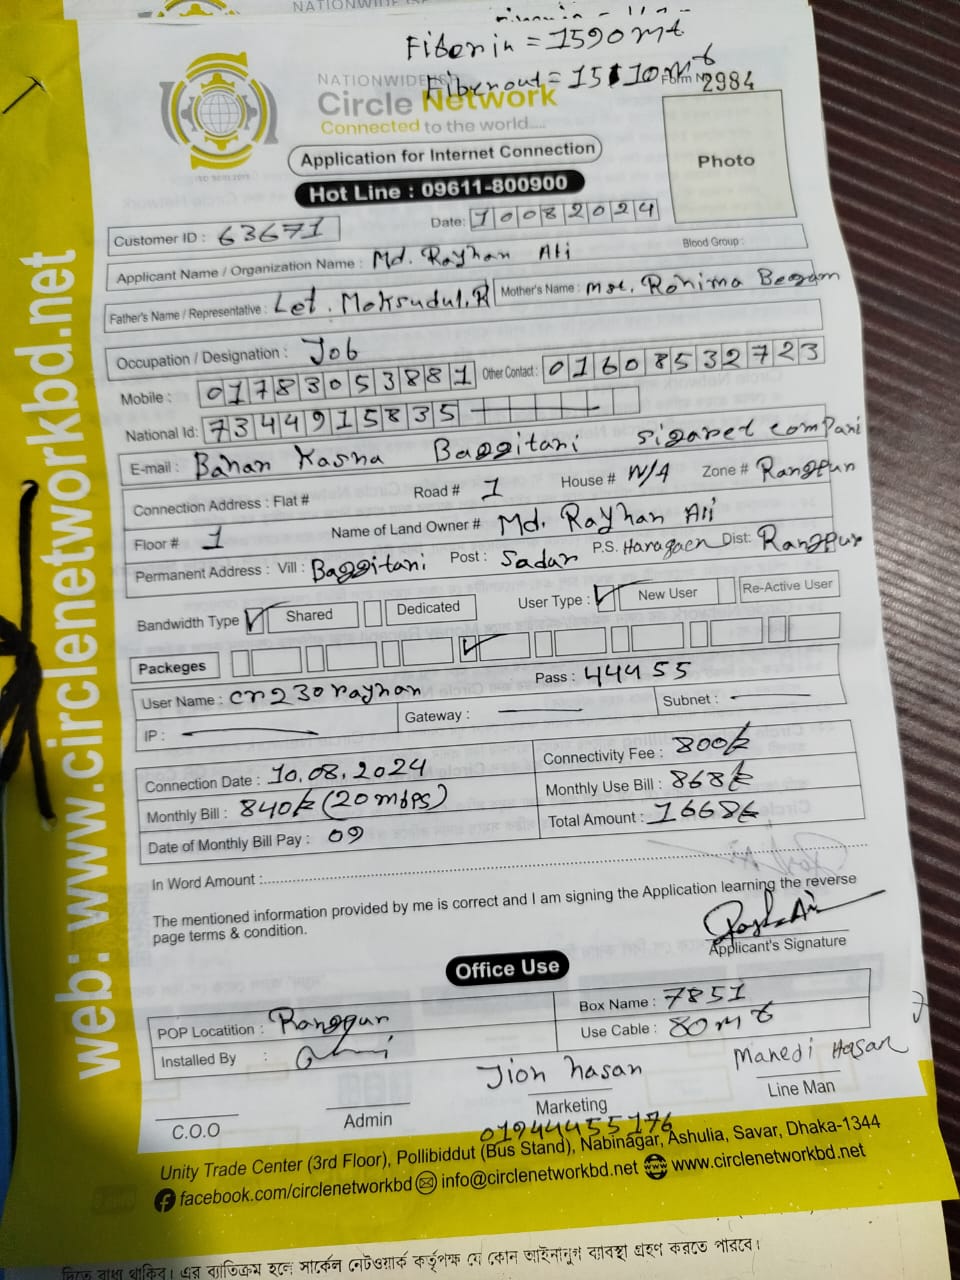 NATIONWIDE
Fiber in = 1590 mt
Fiber out = 1510 mt
Form No 2984
NATIONWIDE
Circle Network
Connected to the world.....
Application for Internet Connection
Photo
Hot Line : 09611-800900
Date: 10082024
Customer ID : 63671
Blood Group :
Applicant Name / Organization Name : Md. Rayhan Ali
Father's Name / Representative : Let. Moksudul. R Mother's Name : Mst. Rohima Begam
Occupation / Designation : Job
Mobile : 01783053881 Other Contact : 01608532723
National Id: 7344915835
E-mail : Bahan Kasna Baggitani sigaret compani
Connection Address : Flat # Road # 1 House # N/A Zone # Rangpur
Floor # 1 Name of Land Owner # Md. Rayhan Ali
Permanent Address : Vill : Baggitani Post : Sadar P.S. Haragach Dist: Rangpur
Bandwidth Type ✓ Shared Dedicated User Type : ✓ New User Re-Active User
Packeges ✓
User Name : cn230rayhan Pass : 44455
IP : — Gateway : — Subnet : —
Connection Date : 10.08.2024 Connectivity Fee : 800/=
Monthly Bill : 840/= (20 mbps) Monthly Use Bill : 868/=
Date of Monthly Bill Pay : 09 Total Amount : 1668/=
In Word Amount :
The mentioned information provided by me is correct and I am signing the Application learning the reverse
page terms & condition.
Applicant's Signature
Office Use
POP Locatition : Rangpur Box Name : 7851
Installed By : Use Cable : 80 mt
Jion hasan Mahedi Hasan
C.O.O Admin Marketing Line Man
01944455176
Unity Trade Center (3rd Floor), Pollibiddut (Bus Stand), Nabinagar, Ashulia, Savar, Dhaka-1344
facebook.com/circlenetworkbd info@circlenetworkbd.net www.circlenetworkbd.net
web: www.circlenetworkbd.net
দিতে বাধ্য থাকিব। এর ব্যতিক্রম হলে সার্কেল নেটওয়ার্ক কর্তৃপক্ষ যে কোন আইনানুগ ব্যবস্থা গ্রহণ করতে পারবে।